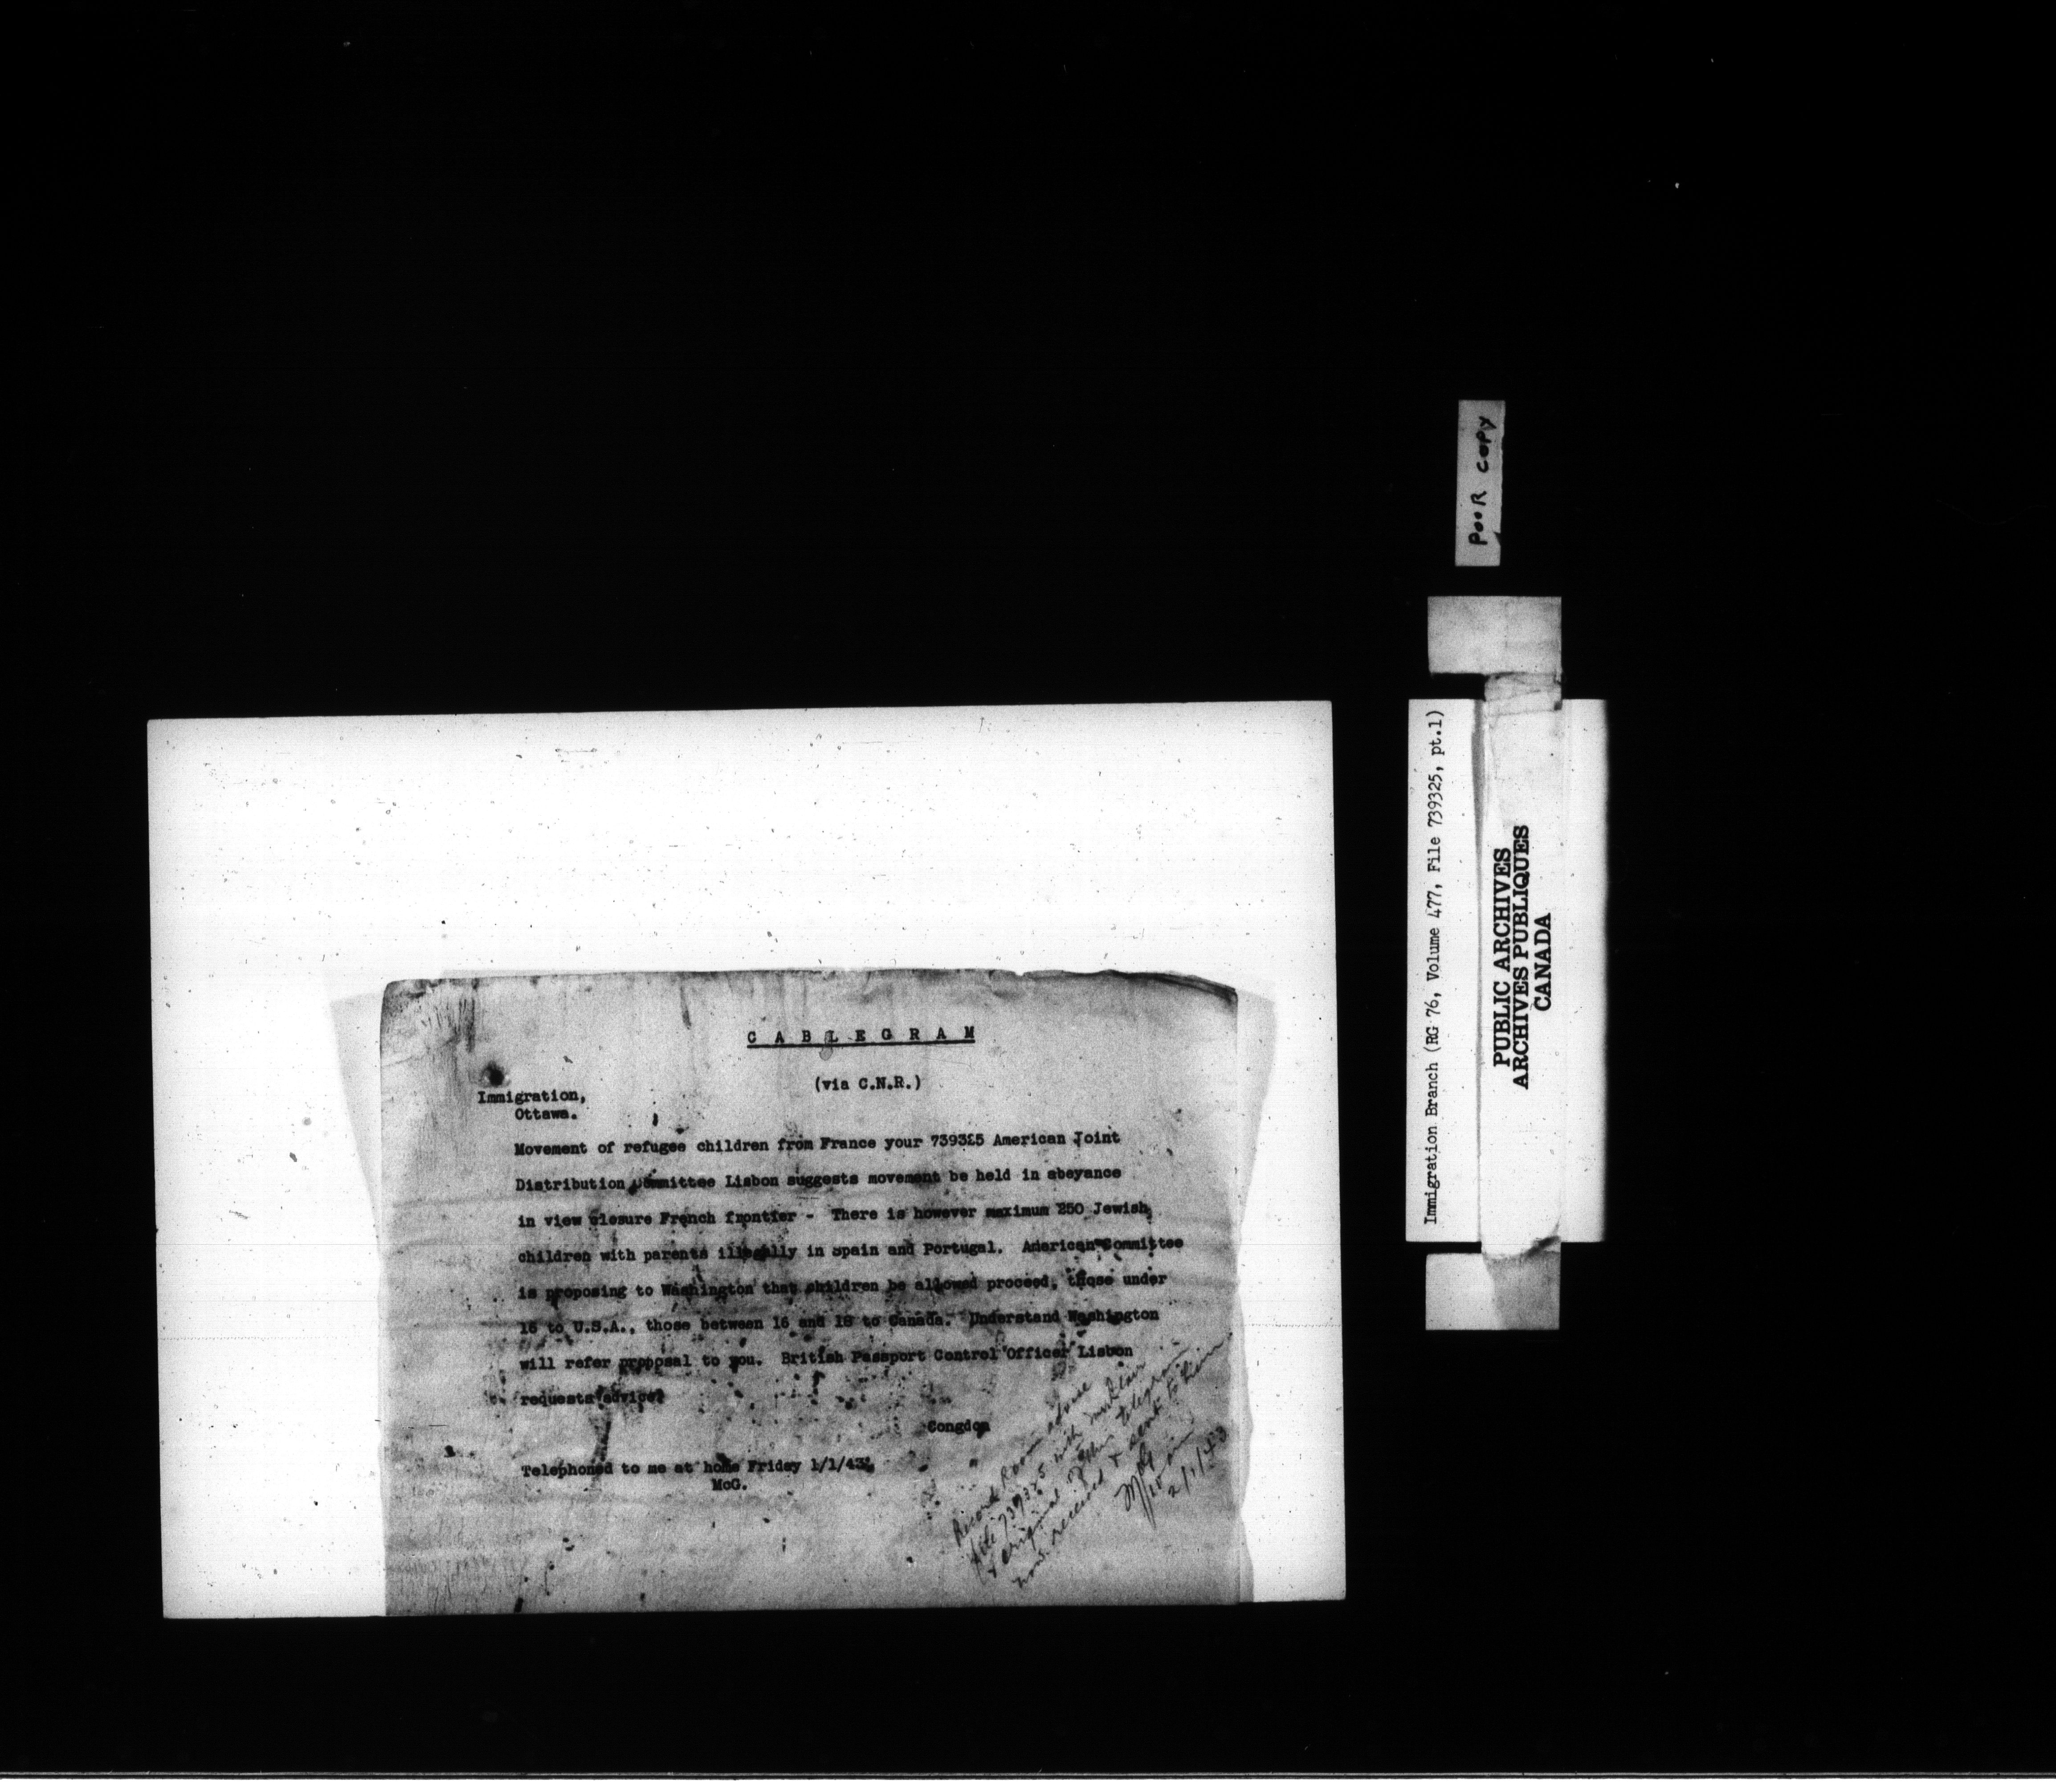 C A B L E G R A M
(via C.N.R.)
Immigration,
Ottawa.
Movement of refugee children from France your 739325 American Joint
Distribution Committee Lisbon suggests movement be held in abeyance
in view closure French frontier - There is however maximum 250 Jewish
children with parents illegally in Spain and Portugal. American Committee
is proposing to Washington that children be allowed proceed, those under
16 to U.S.A., those between 16 and 18 to Canada. Understand Washington
will refer proposal to you. British Passport Control Officer Lisbon
requests advice.
Congdon
Telephoned to me at home Friday 1/1/43.
McG.
Record Room advise
file 739325 with Mr. Blair
& original of this telegram
now received & sent to him
McG
10 am
2/1/43
POOR COPY
Immigration Branch (RG 76, Volume 477, File 739325, pt.1)
PUBLIC ARCHIVES
ARCHIVES PUBLIQUES
CANADA